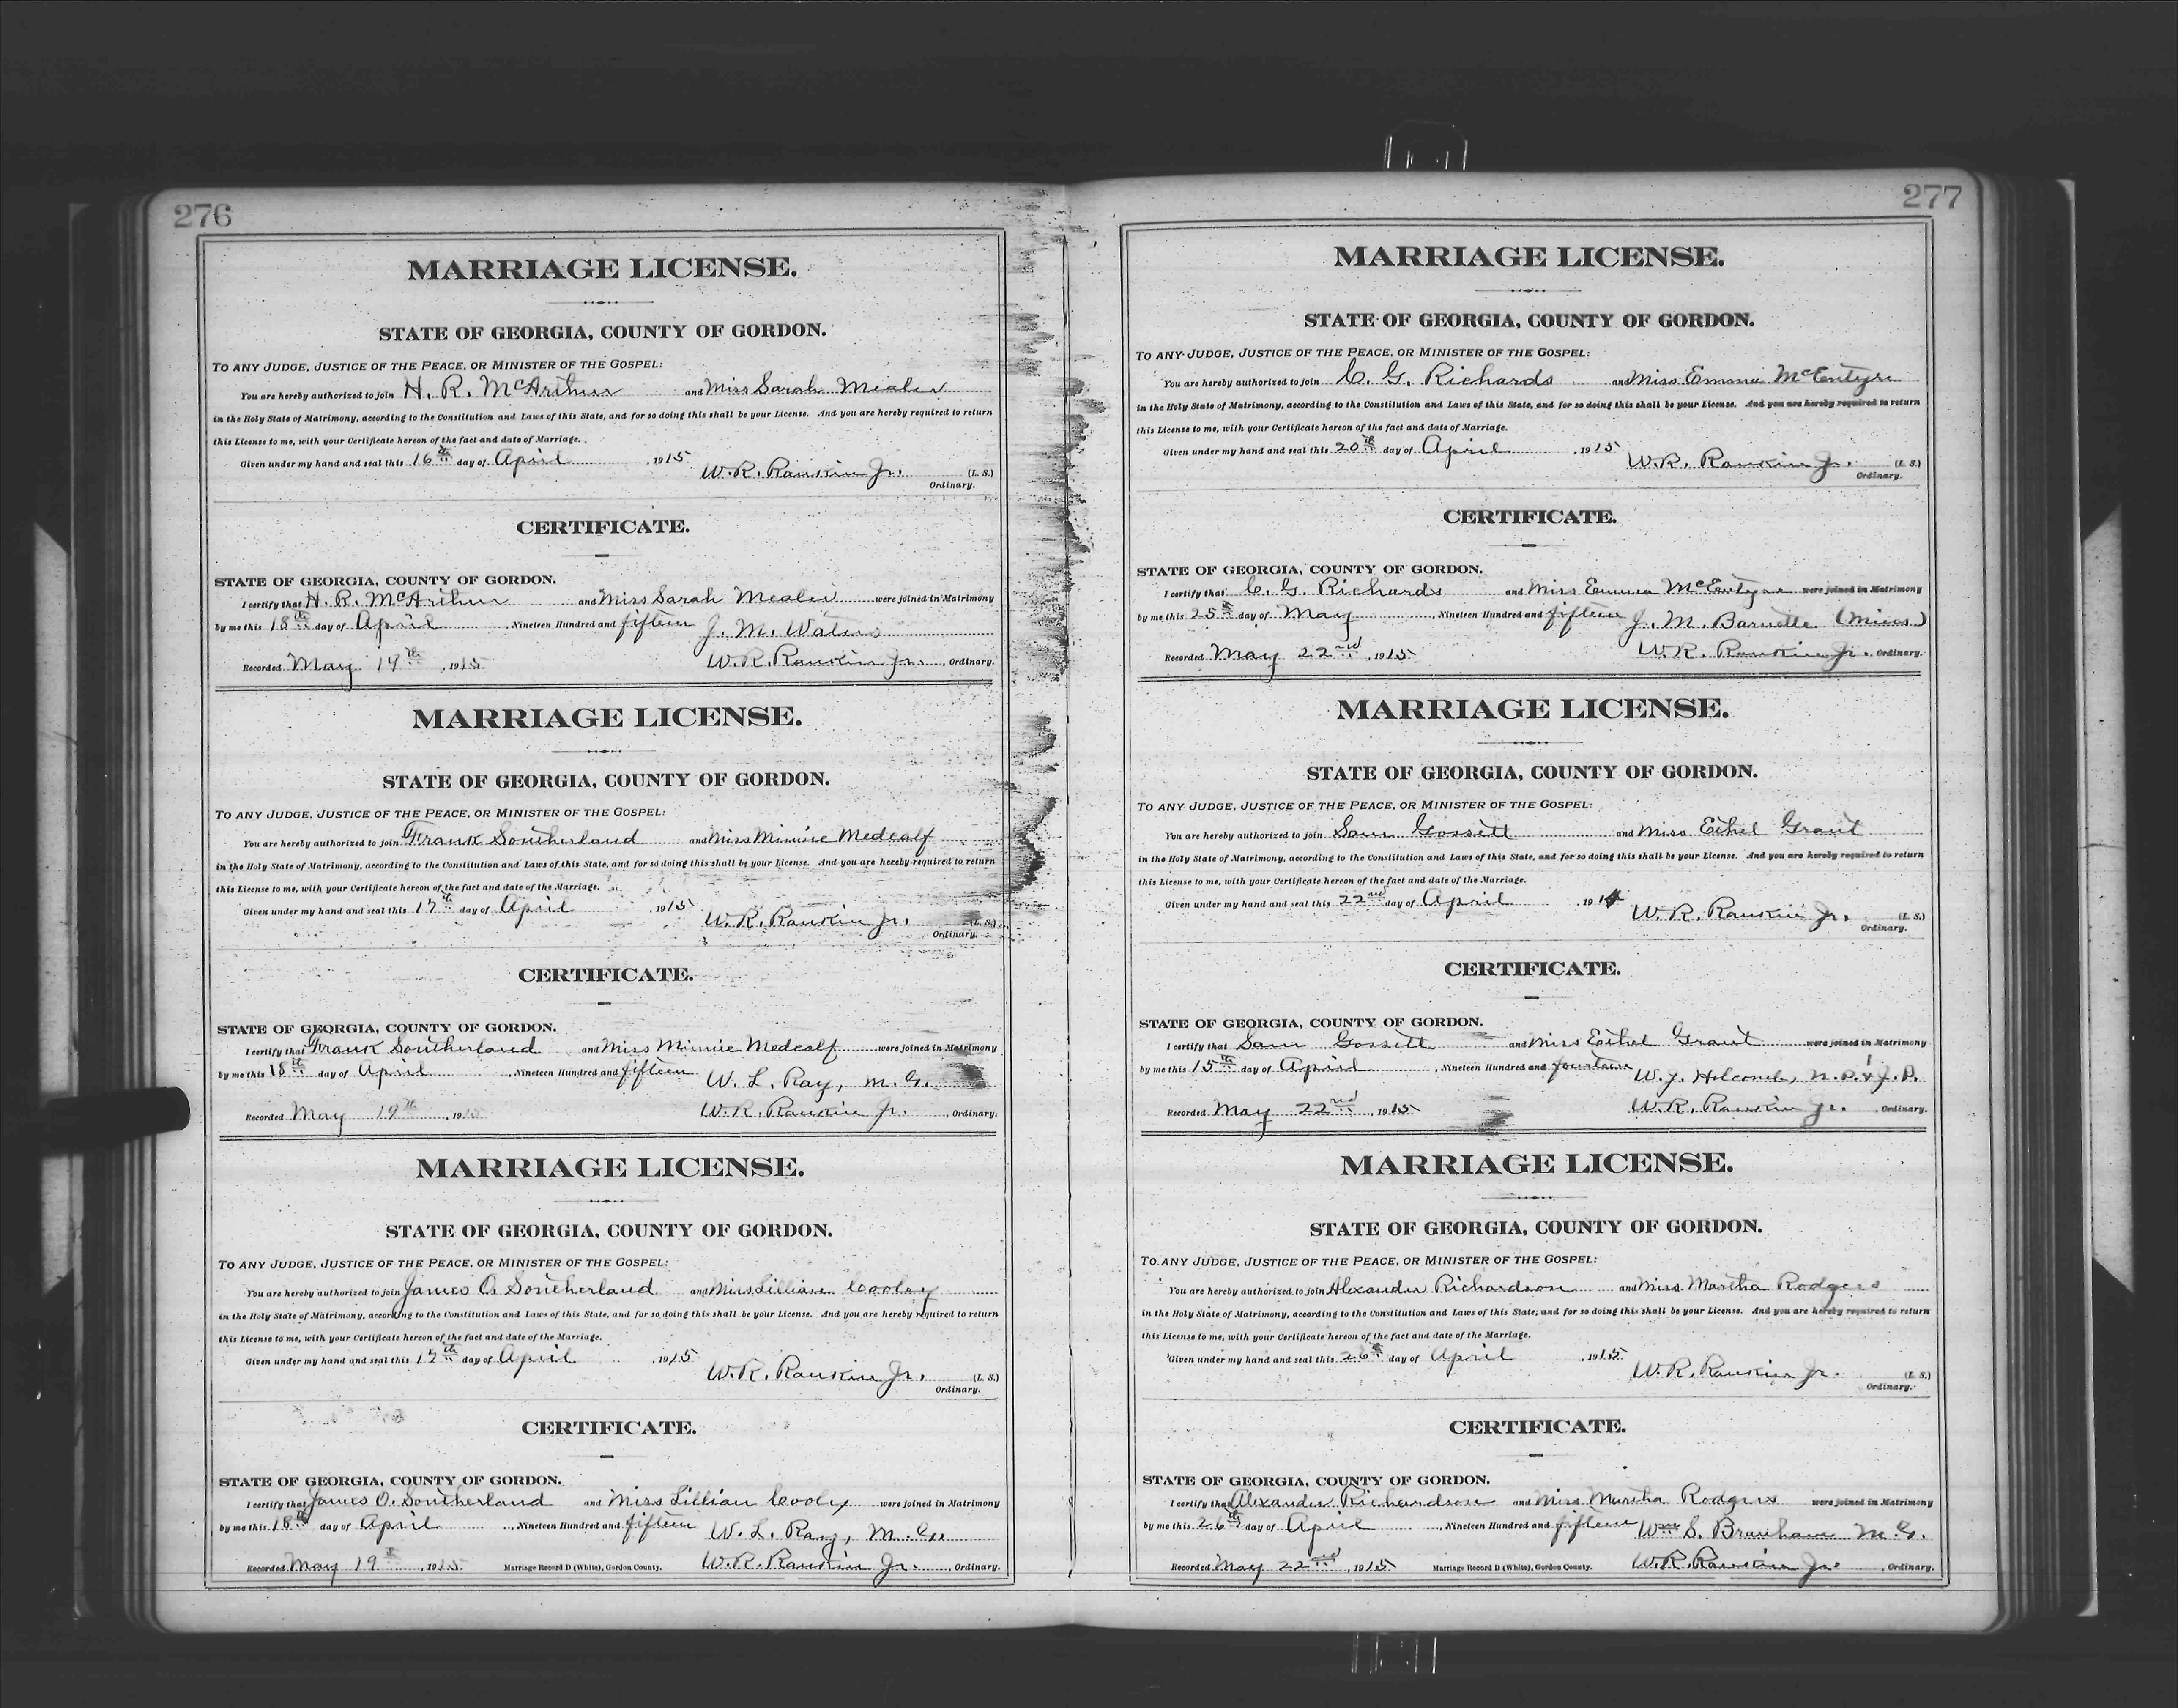 276
MARRIAGE LICENSE.
STATE OF GEORGIA, COUNTY OF GORDON.
TO ANY JUDGE, JUSTICE OF THE PEACE, OR MINISTER OF THE GOSPEL:
You are hereby authorized to join H. R. McArthur and Miss Sarah Mealer
in the Holy State of Matrimony, according to the Constitution and Laws of this State, and for so doing this shall be your License. And you are hereby required to return
this License to me, with your Certificate hereon of the fact and date of Marriage.
Given under my hand and seal this 16th day of April, 1915
W. R. Rankin Jr. (L. S.)
Ordinary.
CERTIFICATE.
STATE OF GEORGIA, COUNTY OF GORDON.
I certify that H. R. McArthur and Miss Sarah Mealer were joined in Matrimony
by me this 18th day of April, Nineteen Hundred and fifteen J. M. Waters
Recorded May 19th, 1915 W. R. Rankin Jr., Ordinary.
MARRIAGE LICENSE.
STATE OF GEORGIA, COUNTY OF GORDON.
TO ANY JUDGE, JUSTICE OF THE PEACE, OR MINISTER OF THE GOSPEL:
You are hereby authorized to join Frank Southerland and Miss Minnie Medcalf
in the Holy State of Matrimony, according to the Constitution and Laws of this State, and for so doing this shall be your License. And you are hereby required to return
this License to me, with your Certificate hereon of the fact and date of the Marriage.
Given under my hand and seal this 17th day of April 1915
W. R. Rankin Jr. (L. S.)
Ordinary.
CERTIFICATE.
STATE OF GEORGIA, COUNTY OF GORDON.
I certify that Frank Southerland and Miss Minnie Medcalf were joined in Matrimony
by me this 18th day of April, Nineteen Hundred and fifteen W. L. Ray, M. G.
Recorded May 19th, 1915 W. R. Rankin Jr., Ordinary.
MARRIAGE LICENSE.
STATE OF GEORGIA, COUNTY OF GORDON.
TO ANY JUDGE, JUSTICE OF THE PEACE, OR MINISTER OF THE GOSPEL:
You are hereby authorized to join James O. Southerland and Miss Lillian Cooley
in the Holy State of Matrimony, according to the Constitution and Laws of this State, and for so doing this shall be your License. And you are hereby required to return
this License to me, with your Certificate hereon of the fact and date of the Marriage.
Given under my hand and seal this 17th day of April, 1915
W. R. Rankin Jr. (L. S.)
Ordinary.
CERTIFICATE.
STATE OF GEORGIA, COUNTY OF GORDON.
I certify that James O. Southerland and Miss Lillian Cooley were joined in Matrimony
by me this 18th day of April, Nineteen Hundred and fifteen W. L. Ray, M. G.
Recorded May 19th, 1915 Marriage Record D (White), Gordon County. W. R. Rankin Jr., Ordinary.
277
MARRIAGE LICENSE.
STATE OF GEORGIA, COUNTY OF GORDON.
TO ANY JUDGE, JUSTICE OF THE PEACE, OR MINISTER OF THE GOSPEL:
You are hereby authorized to join C. G. Richards and Miss Emma McEntyre
in the Holy State of Matrimony, according to the Constitution and Laws of this State, and for so doing this shall be your License. And you are hereby required to return
this License to me, with your Certificate hereon of the fact and date of Marriage.
Given under my hand and seal this 20th day of April, 1915
W. R. Rankin Jr. (L. S.)
Ordinary.
CERTIFICATE.
STATE OF GEORGIA, COUNTY OF GORDON.
I certify that C. G. Richards and Miss Emma McEntyre were joined in Matrimony
by me this 25th day of May, Nineteen Hundred and fifteen J. M. Barnette
Recorded May 22nd, 1915 W. R. Rankin Jr., Ordinary.
MARRIAGE LICENSE.
STATE OF GEORGIA, COUNTY OF GORDON.
TO ANY JUDGE, JUSTICE OF THE PEACE, OR MINISTER OF THE GOSPEL:
You are hereby authorized to join Sam Gossett and Miss Ethel Grant
in the Holy State of Matrimony, according to the Constitution and Laws of this State, and for so doing this shall be your License. And you are hereby required to return
this License to me, with your Certificate hereon of the fact and date of the Marriage.
Given under my hand and seal this 22nd day of April, 1914
W. R. Rankin Jr. (L. S.)
Ordinary.
CERTIFICATE.
STATE OF GEORGIA, COUNTY OF GORDON.
I certify that Sam Gossett and Miss Ethel Grant were joined in Matrimony
by me this 15th day of April, Nineteen Hundred and fourteen W. J. Holcomb, N. P. & J. P.
Recorded May 22nd, 1915 W. R. Rankin Jr., Ordinary.
MARRIAGE LICENSE.
STATE OF GEORGIA, COUNTY OF GORDON.
TO ANY JUDGE, JUSTICE OF THE PEACE, OR MINISTER OF THE GOSPEL:
You are hereby authorized to join Alexander Richardson and Miss Martha Rodgers
in the Holy State of Matrimony, according to the Constitution and Laws of this State, and for so doing this shall be your License. And you are hereby required to return
this License to me, with your Certificate hereon of the fact and date of the Marriage.
Given under my hand and seal this 26th day of April, 1915
W. R. Rankin Jr. (L. S.)
Ordinary.
CERTIFICATE.
STATE OF GEORGIA, COUNTY OF GORDON.
I certify that Alexander Richardson and Miss Martha Rodgers were joined in Matrimony
by me this 26th day of April, Nineteen Hundred and fifteen Wm S. Branham M. G.
Recorded May 22nd, 1915 Marriage Record D (White), Gordon County. W. R. Rankin Jr., Ordinary.